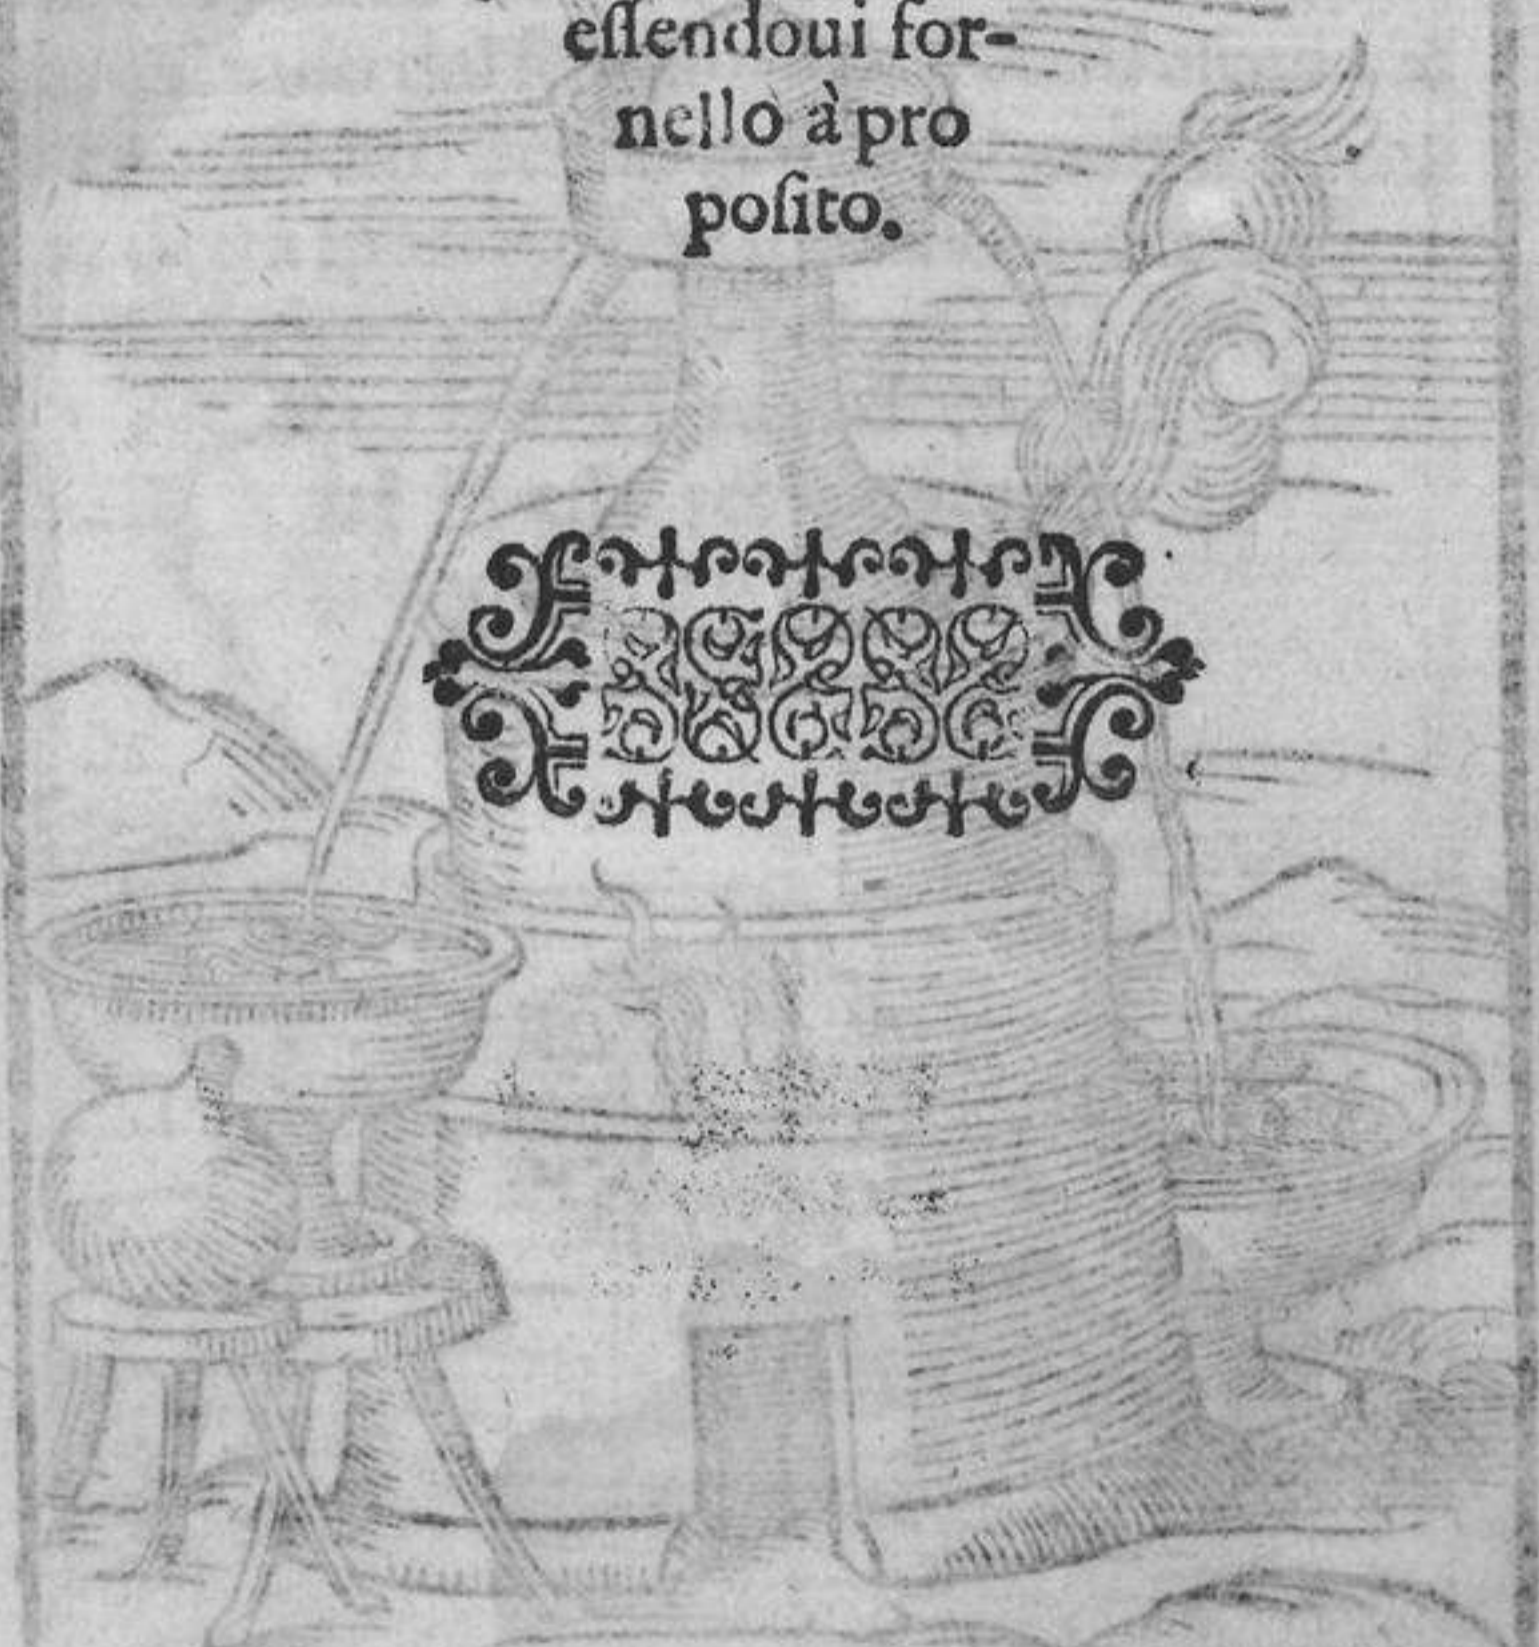 eſſendoui for-
nello à pro
poſito.